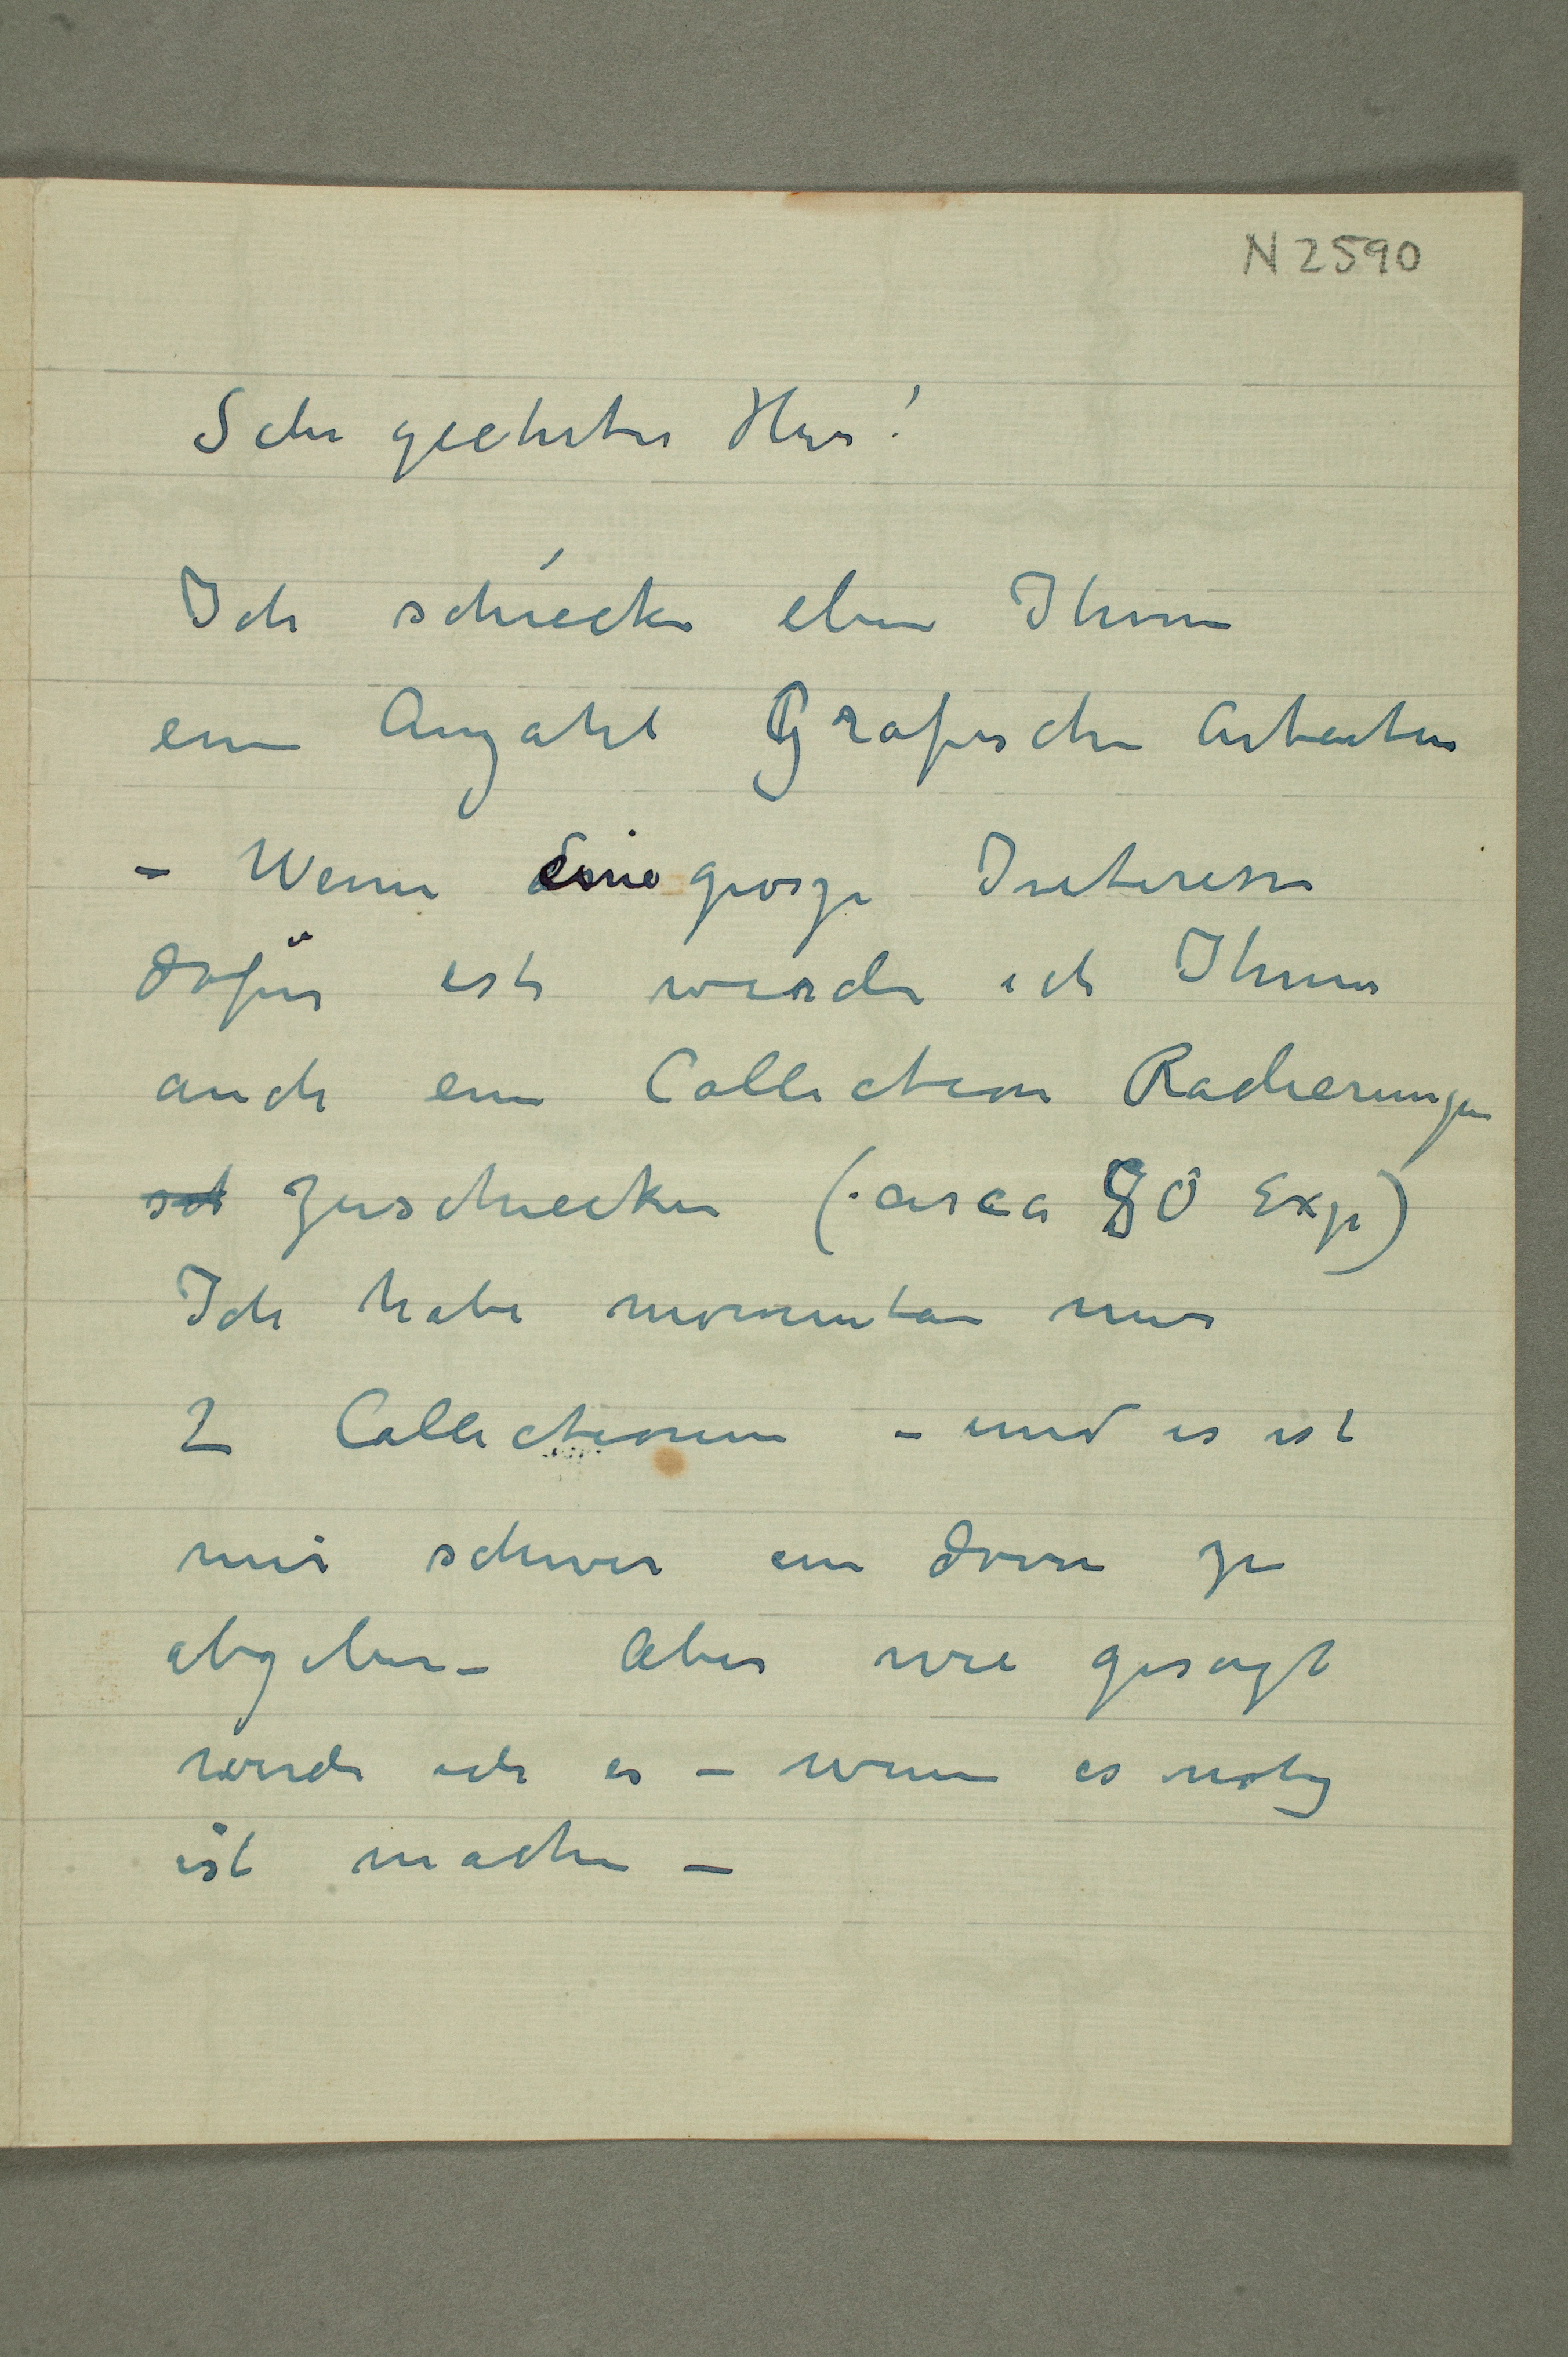 N 2590
Sehr geehrter Herr!
Ich schiecke eben Ihnen
eine Anzahl Grafische Arbeiten
– Wenn eine grosze Interesse
dafür ist werde ich Ihnen
auch eine Collection Radierungen
sch zuschiecken (circa 80 Exp)
Ich habe momentan nur
2 Collectionen – und es ist
mir schwer eine davon zu
abgeben – Aber wie gesagt
werde ich es – wenn es notig
ist machen –